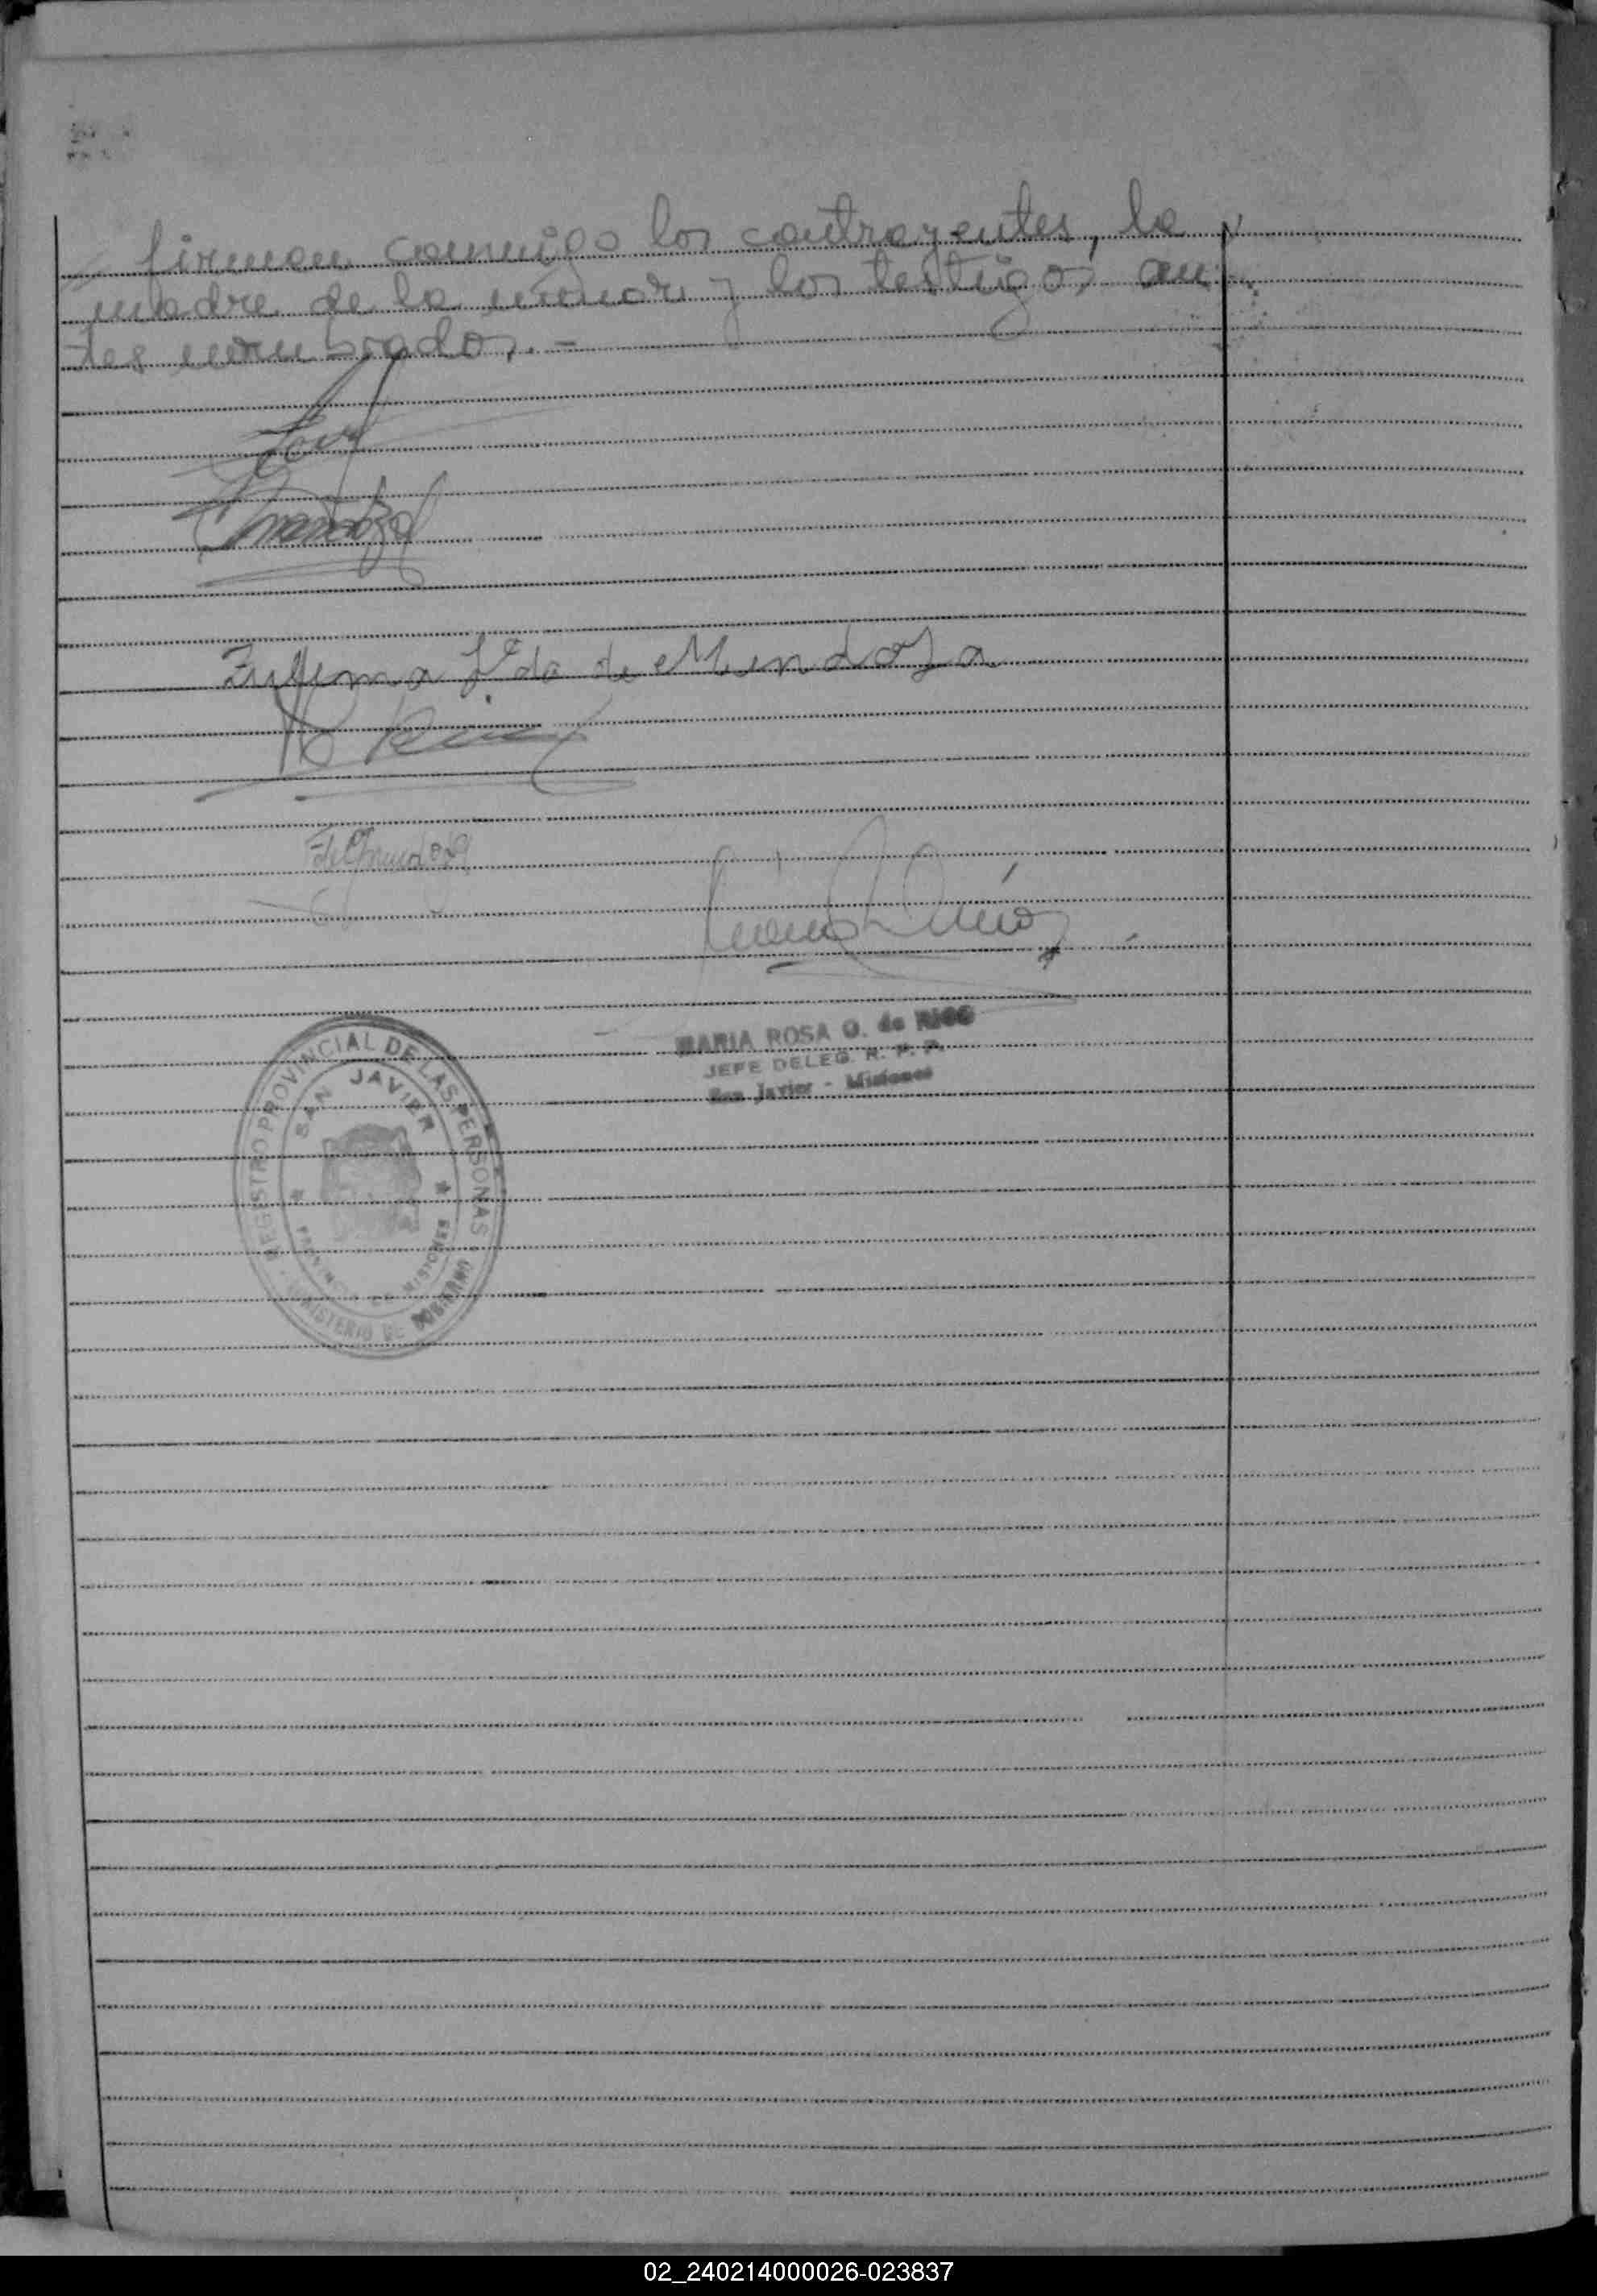 firman conmigo los contrayentes, la
madre de la menor y los testigos an-
tes nombrados.-
Mendoza
Zulema F. da de Mendoza
MARIA ROSA O. de RICO
JEFE DELEG. R. P. P.
San Javier - Misiones
REGISTRO PROVINCIAL DE LAS PERSONAS
SAN JAVIER
PROVINCIA DE MISIONES
MINISTERIO DE GOBIERNO
02_240214000026-023837